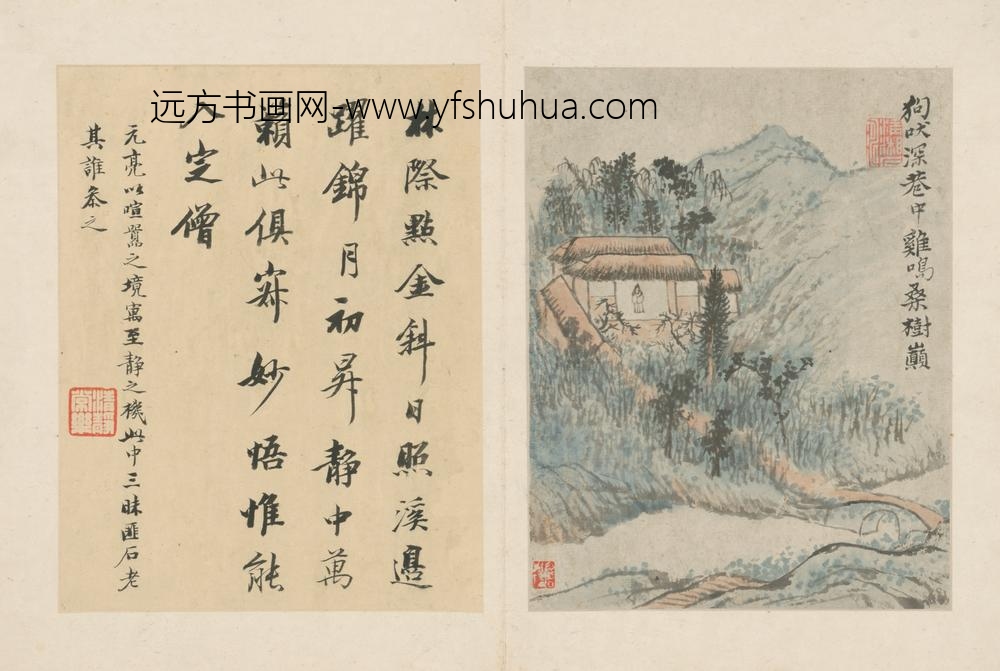 狗吠深巷中雞鳴桑樹巔
林際點金斜日照溪邊
躍錦月初昇靜中萬
籟此俱寂妙悟惟能
入定僧
元亮以喧囂之境寓至靜之機此中三昧匪石老
其誰參之
远方书画网-www.yfshuhua.com